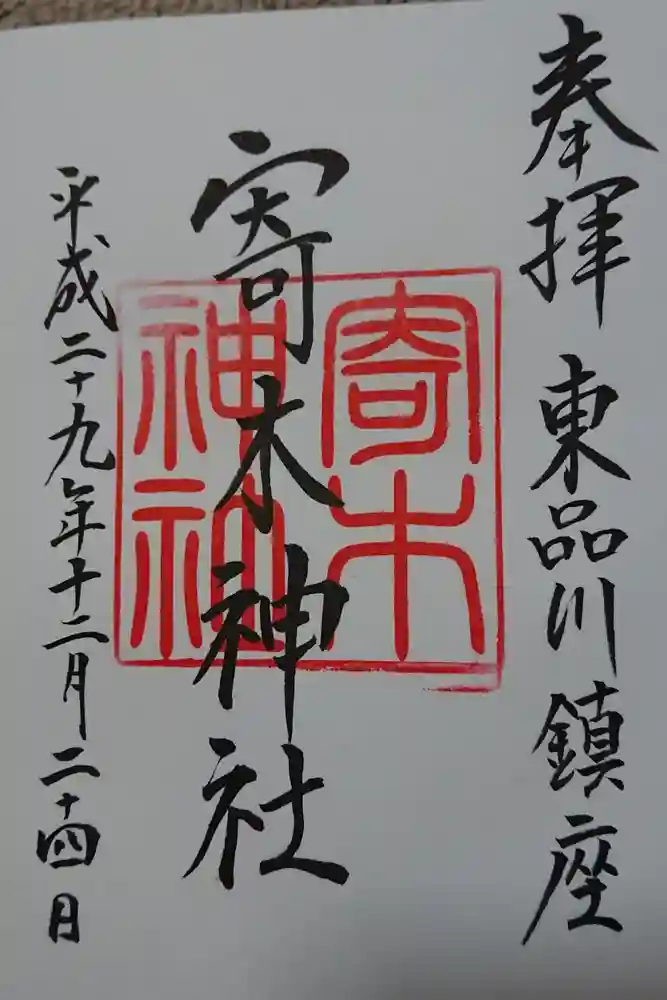 奉拝 東品川鎮座
寄木神社
寄木
神社
平成二十九年十二月二十四日